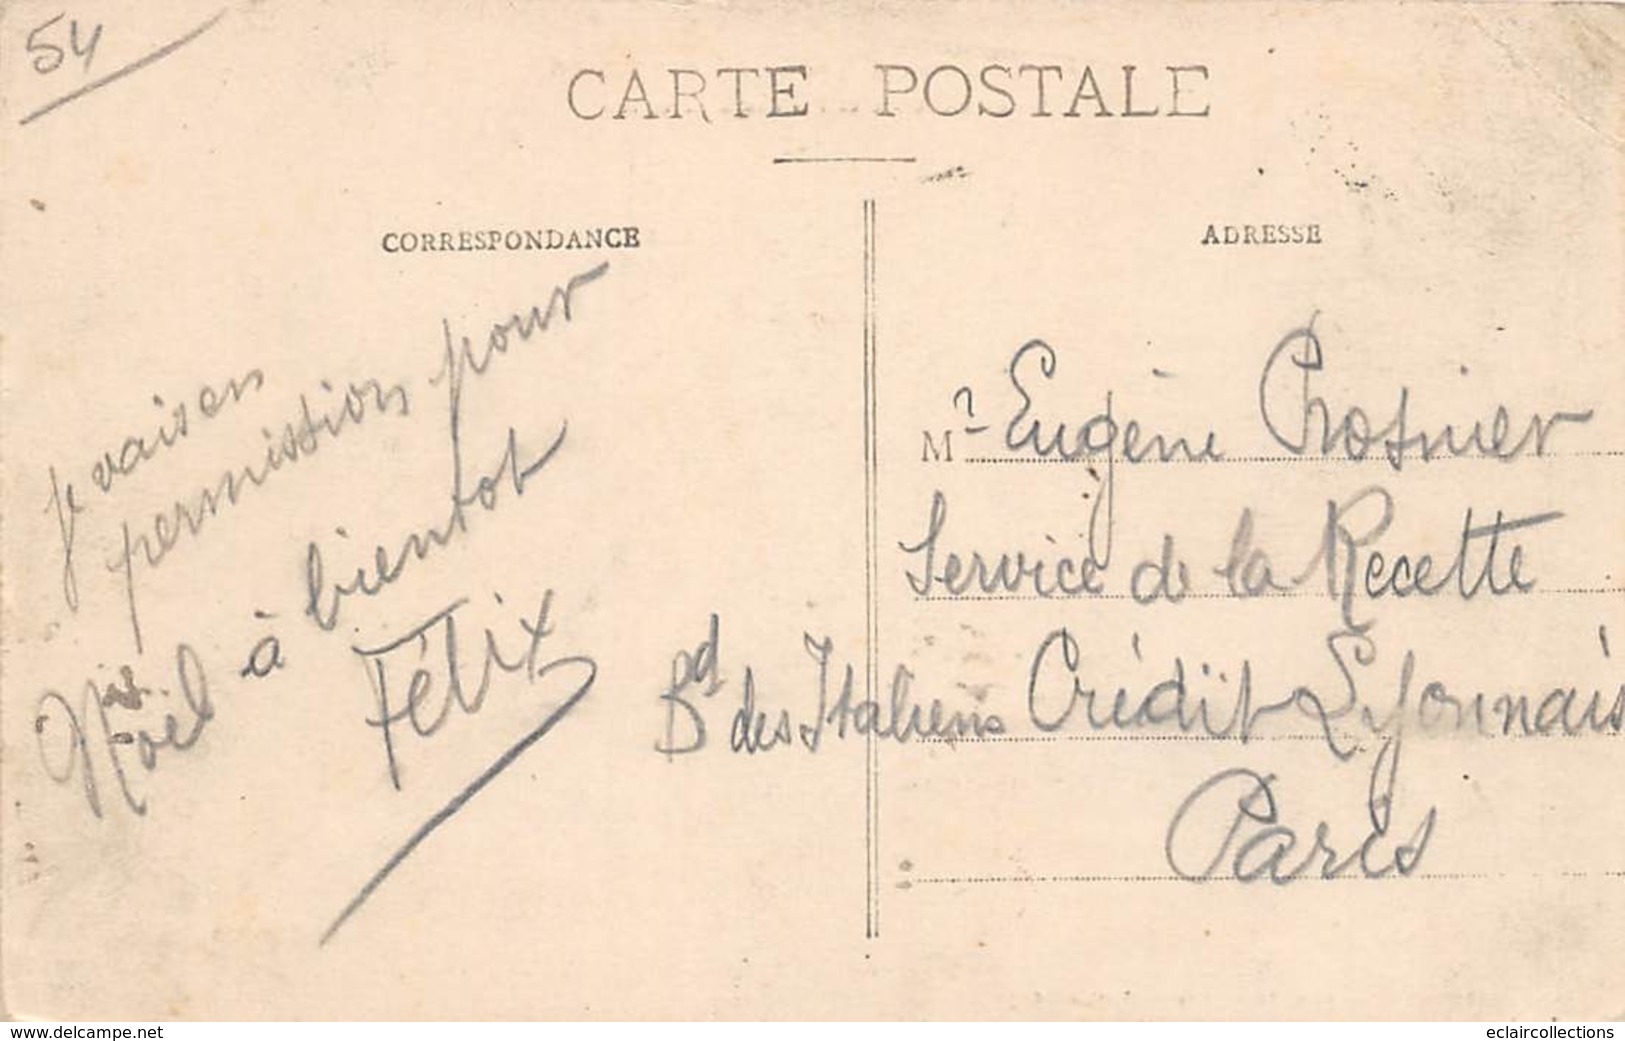 54
CARTE POSTALE
CORRESPONDANCE
ADRESSE
je vais en
permission pour
Noël à bientot
Félix
Mr Eugène Prosnier
Service de la Recette
Bd des Italiens Crédit Lyonnais
Paris
www.delcampe.net
eclaircollections